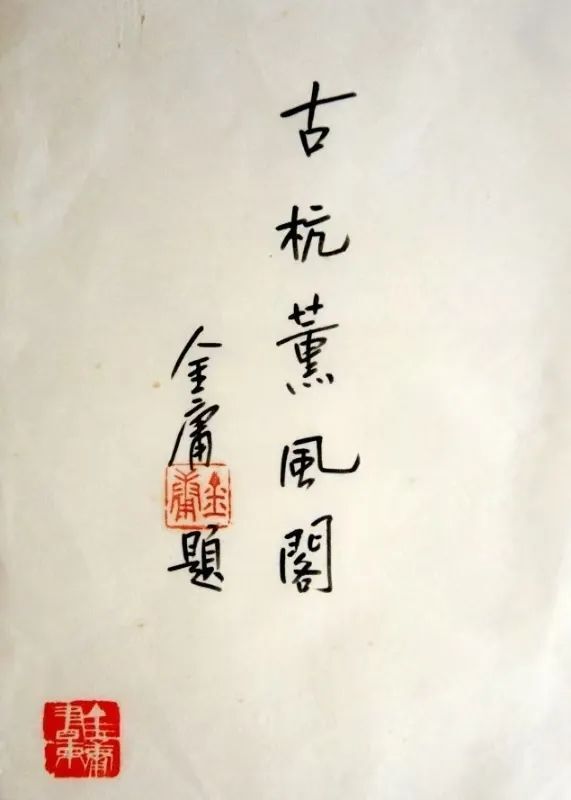 古杭薰風閣
金庸題
金庸
金庸書